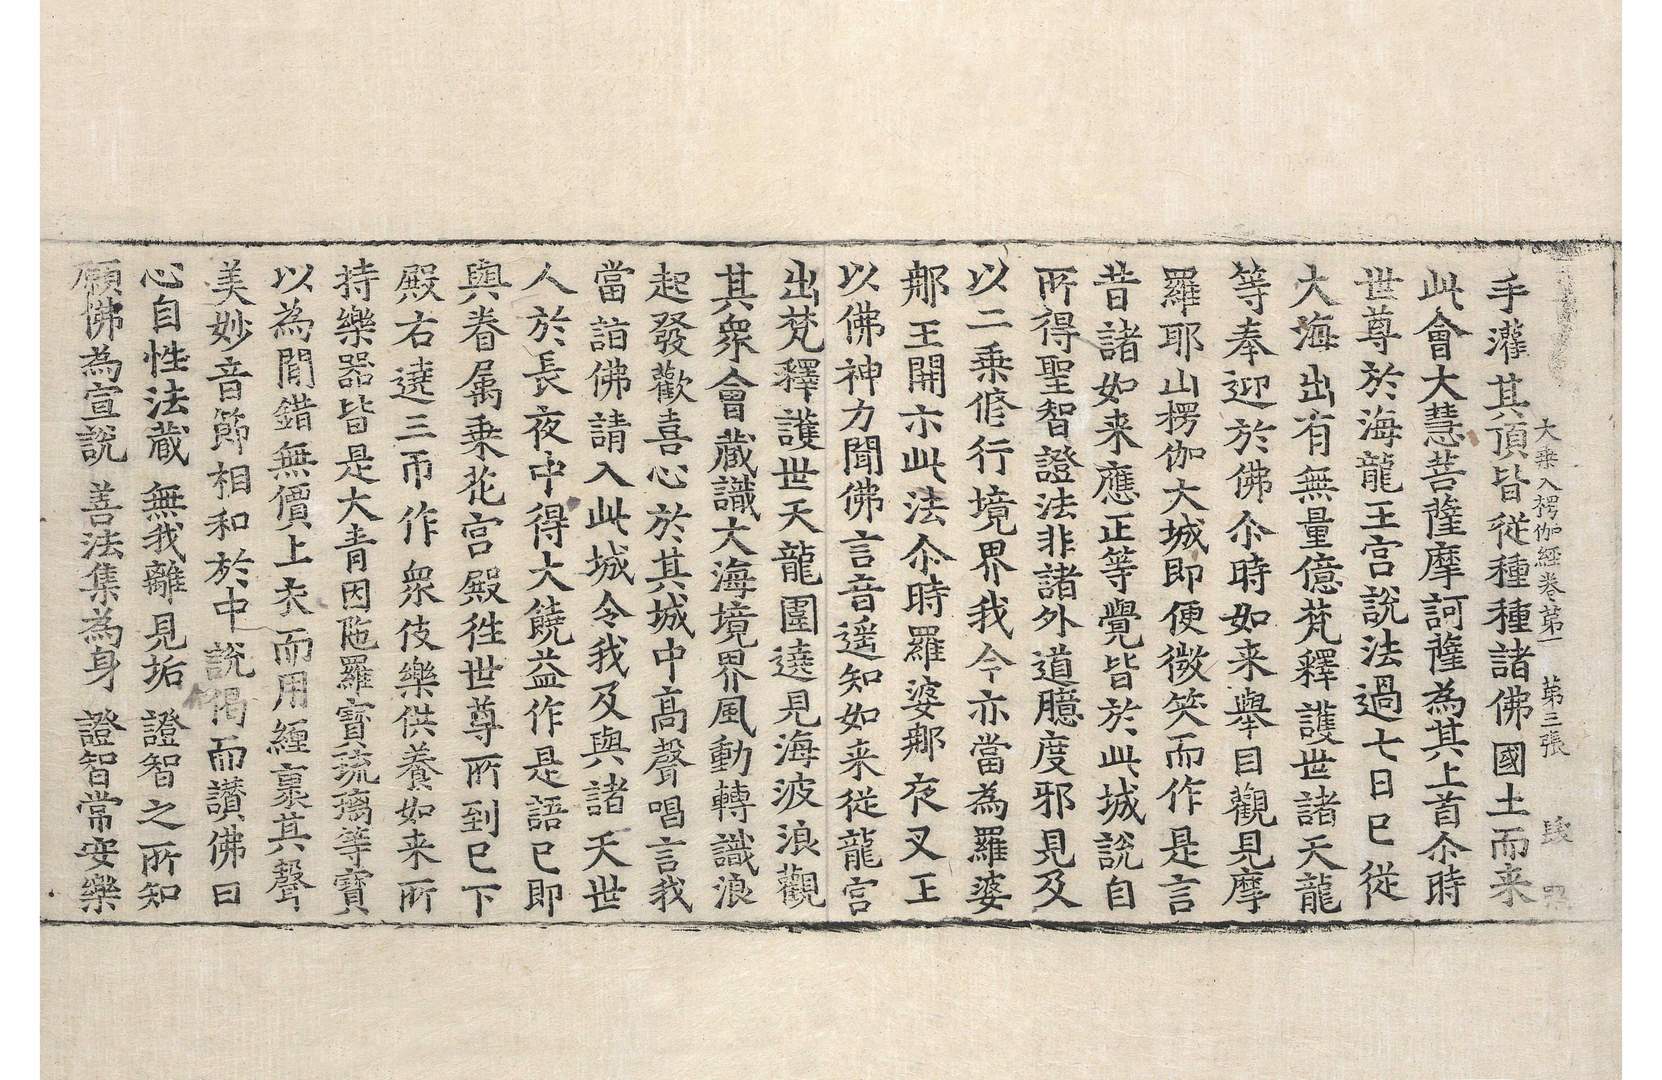 大乗入楞伽經卷第一　第三張
手灌其頂皆從種種諸佛國土而来
此會大慧菩薩摩訶薩為其上首尒時
世尊於海龍王宮說法過七日已從
大海出有無量億梵釋護世諸天龍
等奉迎於佛尒時如来舉目觀見摩
羅耶山楞伽大城即便微笑而作是言
昔諸如来應正等覺皆於此城說自
所得聖智證法非諸外道臆度邪見及
以二乗修行境界我今亦當為羅婆
那王開示此法尒時羅婆那夜叉王
以佛神力聞佛言音遥知如来従龍宮
出梵釋護世天龍圍遶見海波浪觀
其衆會藏識大海境界風動轉識浪
起發歡喜心於其城中高聲唱言我
當詣佛請入此城令我及與諸天世
人於長夜中得大饒益作是語已即
與眷属乗花宮殿徃世尊所到已下
殿右遶三帀作衆伎樂供養如来所
持樂器皆是大青因陁羅寶琉璃等寶
以為間錯無價上衣而用纏裹其聲
美妙音節相和於中說偈而讃佛曰
心自性法藏　無我離見垢　證智之所知
願佛為宣說　善法集為身　證智常安樂